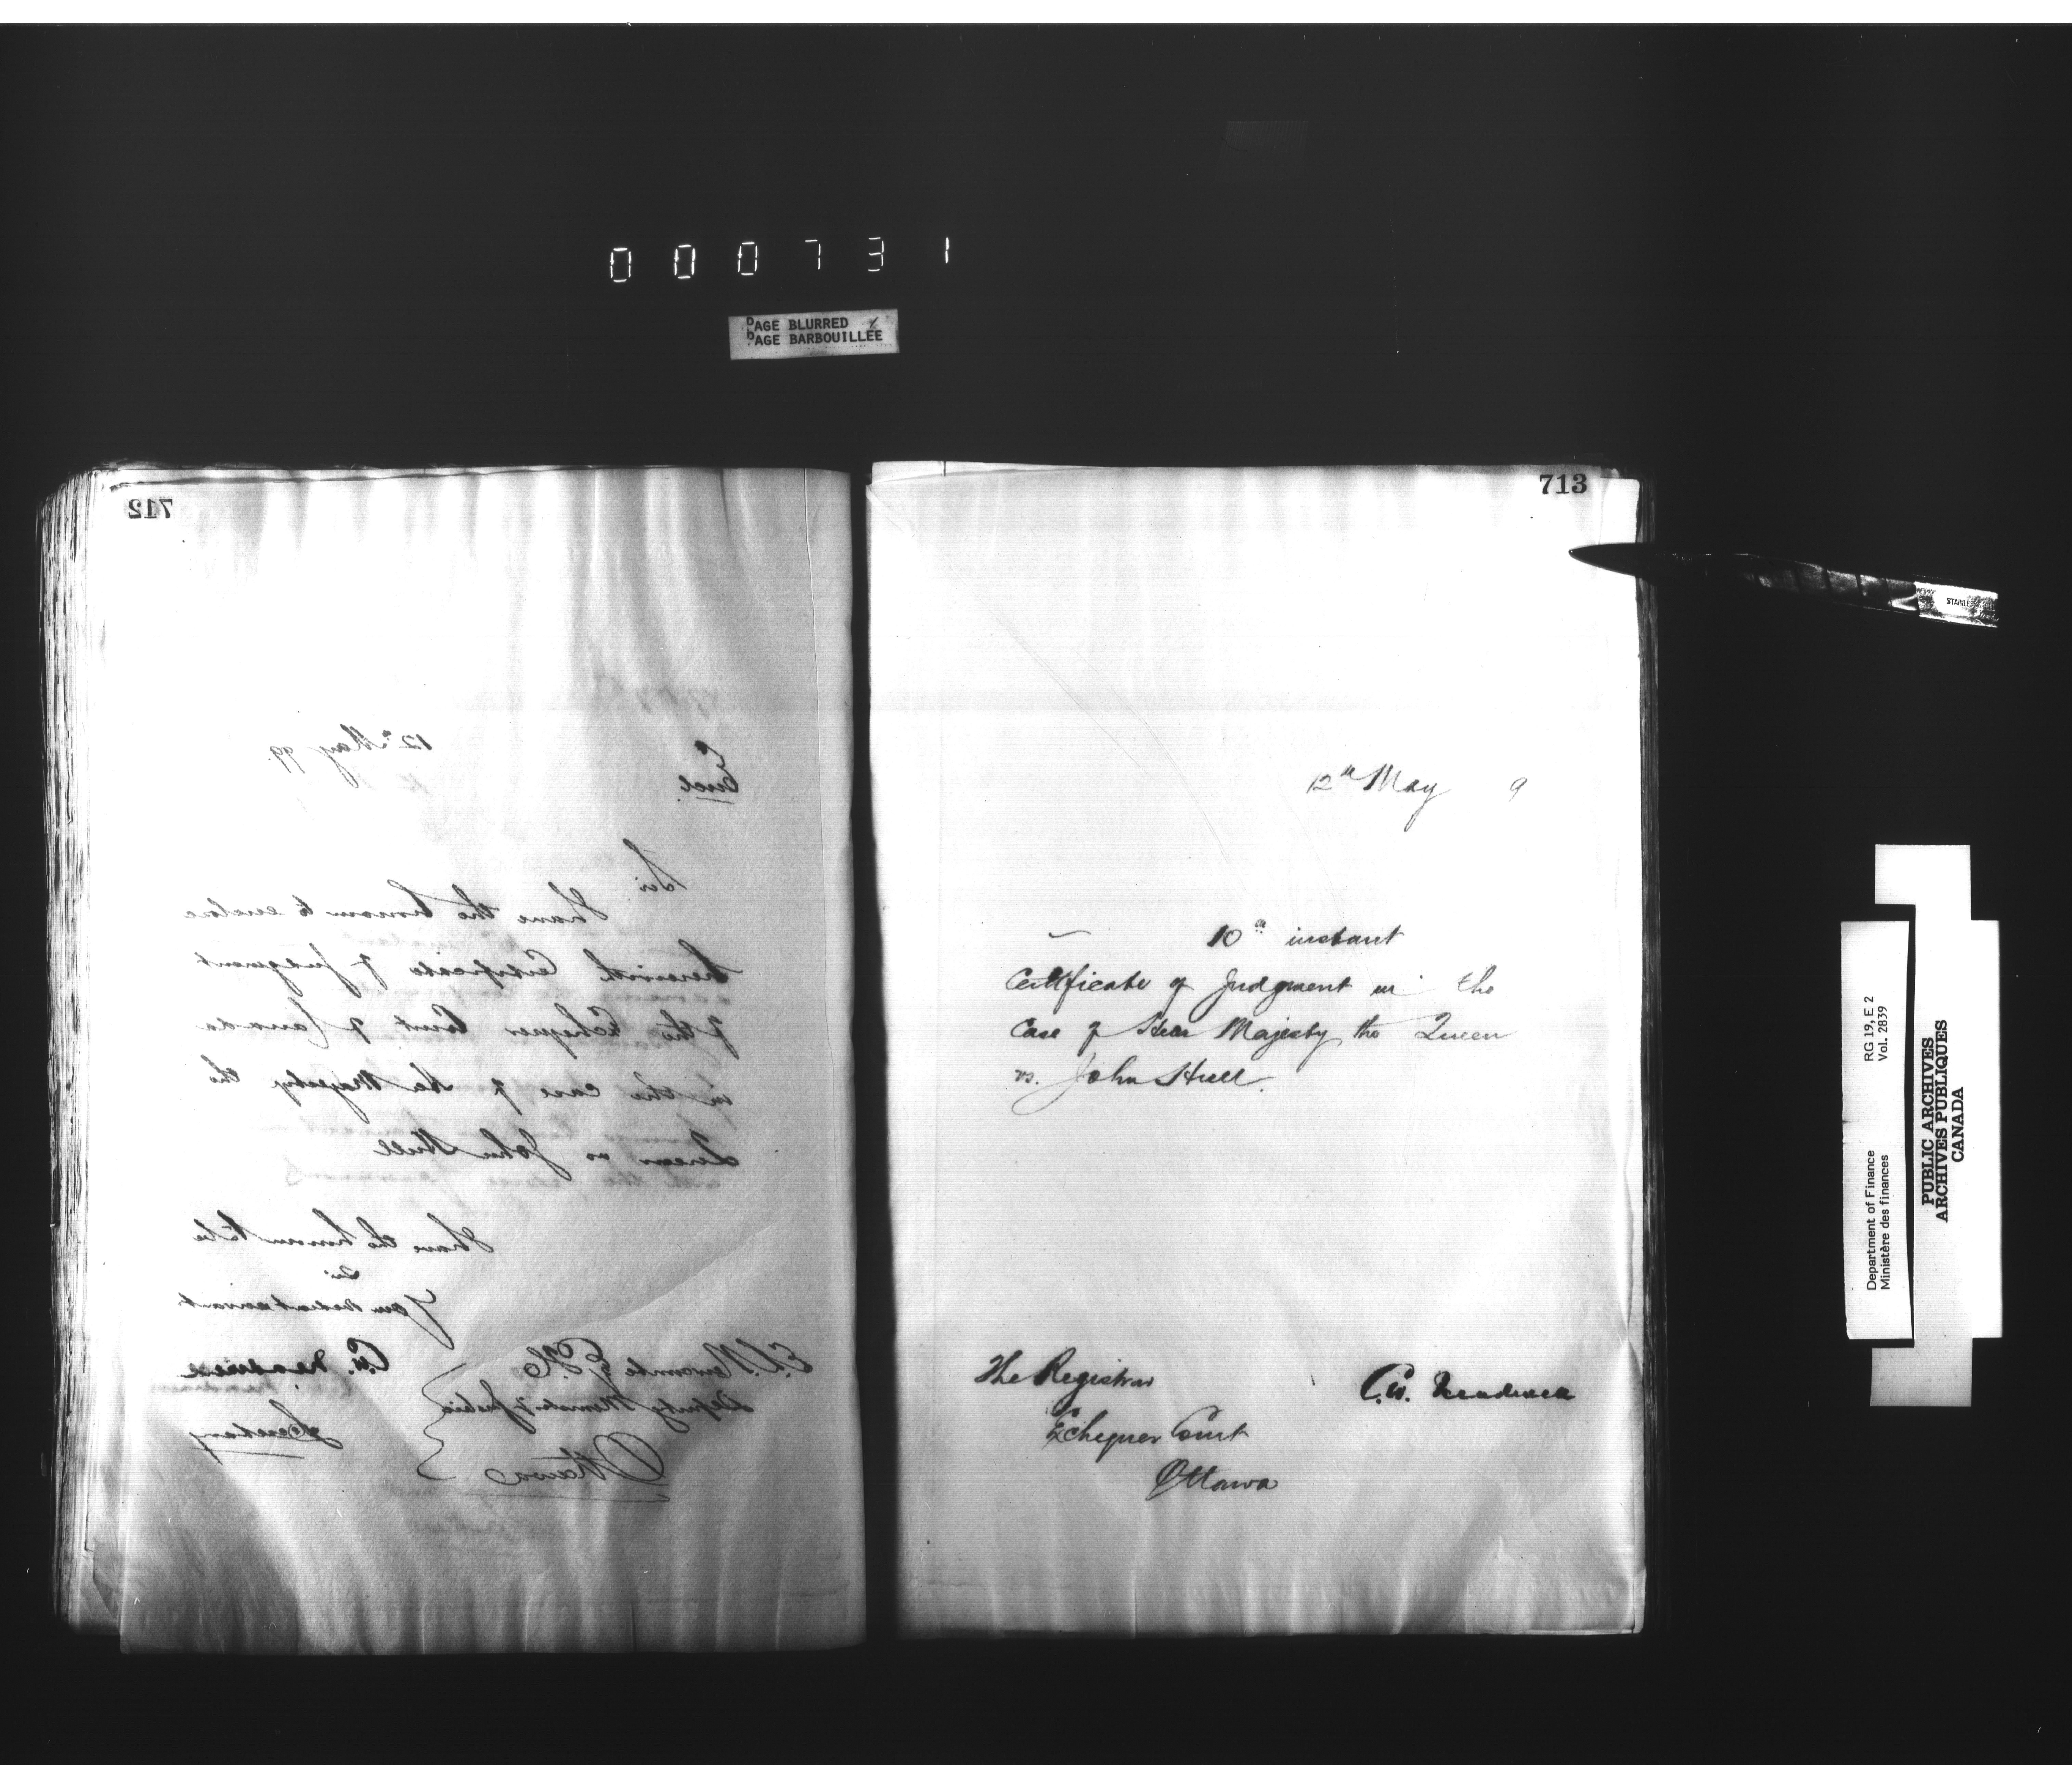 000731
PAGE BLURRED
PAGE BARBOUILLÉE
712
12th May 99.
Encl.
Sir
I have the honour to enclose
herewith Certificate of Judgment
of the Exchequer Court of Canada
in the case of Her Majesty the
Queen vs John Hull
I have the honour to be
Sir
Your obedient servant
E.L. Newcombe Esq. Q.C.
Deputy Minister of Justice
Ottawa
C.W. Treadwell
Secretary
713
12th May 9
10th instant
Certificate of Judgment in the
Case of Her Majesty the Queen
vs. John Hull.
The Registrar
Exchequer Court
Ottawa
C.W. Treadwell
STAINLESS
RG 19, E 2
Vol. 2839
Department of Finance
Ministère des finances
PUBLIC ARCHIVES
ARCHIVES PUBLIQUES
CANADA